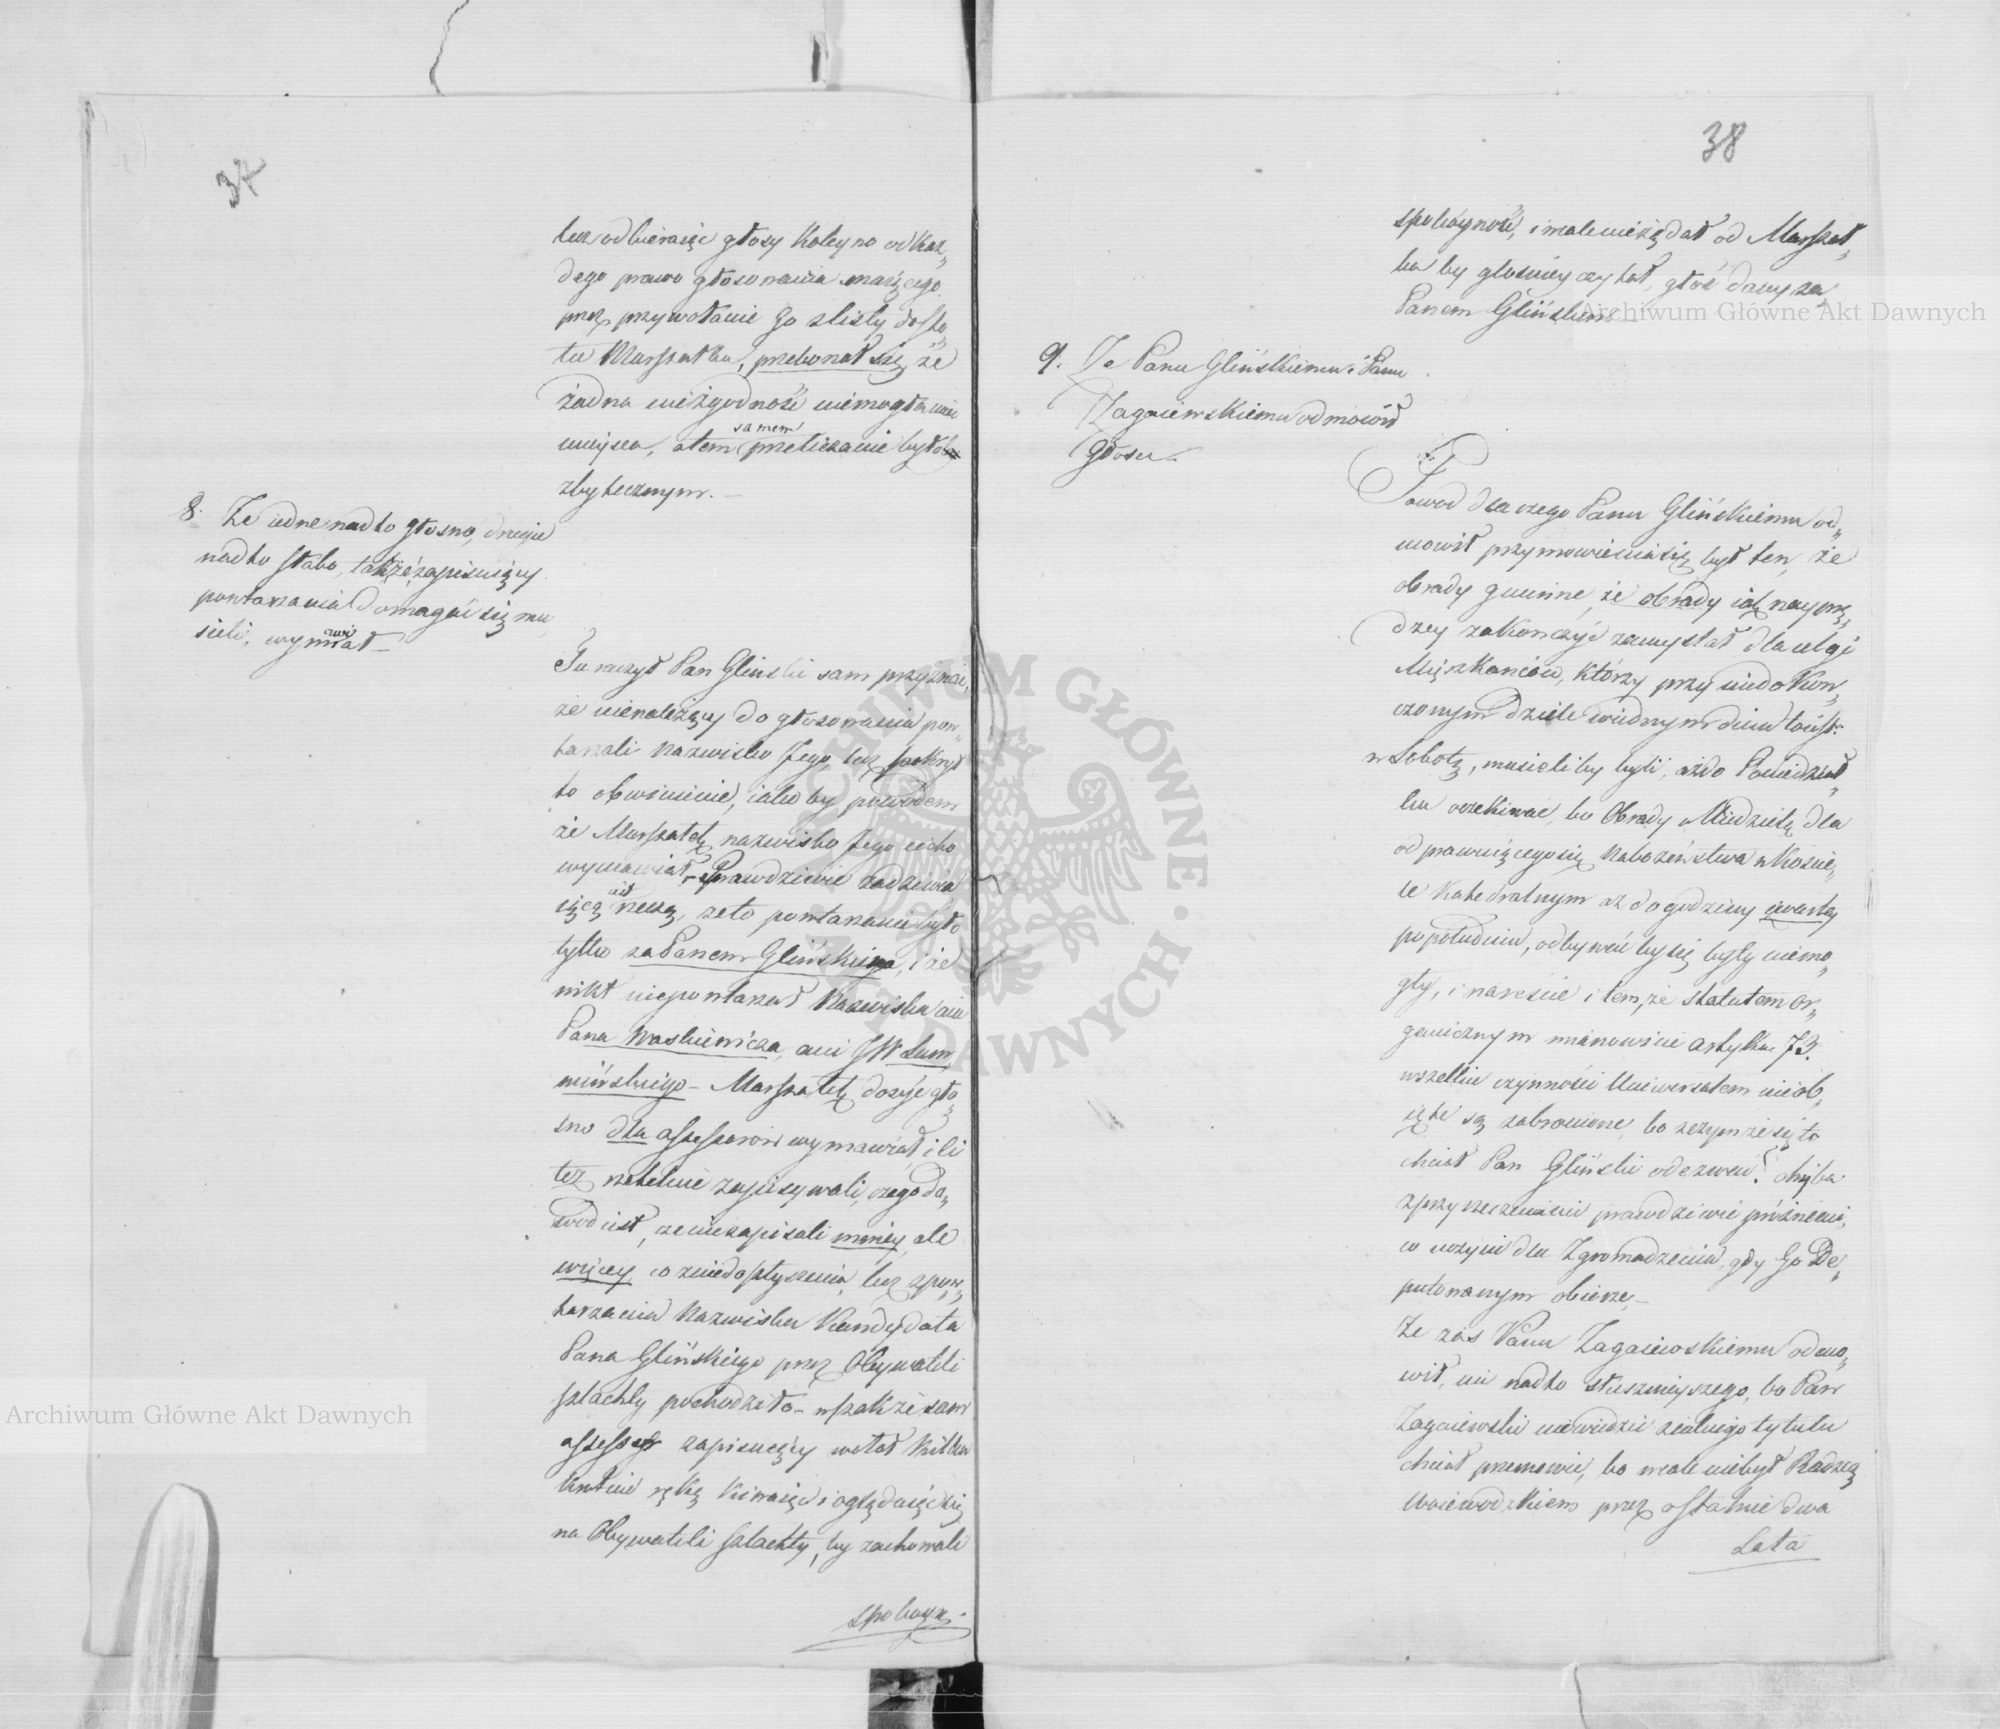 37
lecz odbieraiąc głosy koleyno od każ„
dego prawo głosowania maiącego
przez przywołanie Go z listy do sto„
łu Marszałka, przekonał się, że
żadna niezgodność niemogła mieć
mieysca, a tem samem przeliczanie byłoby
zbytecznym. –
8. Że iedne nadto głosno, drugie
nadto słabo, tak że zapisuiący
powtarzania domagać się mu„
sieli, wymawiał –
Tu raczył Pan Gliński sam przyznać,
że nienależący do głosowania pow„
tarzali nazwisko Jego, lecz pokrył
to obwinienie, iakoby powodem
że Marszałek nazwisko Jego cicho
wymawiał, – Prawdziwie zadziwia
iącą iest rzeczą, że to powtarzanie było
tylko za Panem Glińskim, i że
nikt niepowtarzał Nazwiska ani
Pana Waskiewicza, ani JW Łem„
mińskiego – Marszałek dosyć gło„
sno dla assessorów wymawiał, i ci
też rzetelnie zapisywali, czego do„
wód iest, że niezapisali mniey, ale
więcey, co z niedosłyszenia, lecz z pow„
tarzania Nazwiska Kandydata
Pana Glińskiego przez Obywateli
szlachty pochodziło – wszakże sam
assessor zapisuiący wstał kilka
krotnie ręką kiwaiąc i oglądaiąc się
na Obywateli szlachty, by zachowali
spokoyn„
38
spokoyność, i wcale nieżądał od Marszał„
ka by głośniey czytał, głos dawszą
Panem Glińskim –
9. Że Panu Glińskiemu i Panu
Zagaiewskiemu odmówił
Głosu –
Powod dla czego Panu Glińskiemu od„
mówił przymówienia się był ten, że
obrady gminne, że obrady iak nayprę„
dzey zakończyć zamyślał dla ulgi
Mięszkańców, którzy przy niedokoń„
czonym dziele w iednym dniu to iest:
w Sobotę, musieliby byli, aż do Poniedział„
ku oczekiwać, bo Obrady w Niedzielę dla
odprawuiącego się Nabożeństwa w Koście„
le Katedralnym aż do godziny czwartey
po południu, odbywać by się były niemo„
gły, i nareście i tem, że statutem or„
ganicznym mianowicie artykuł 73.
wszelkie czynności Uniwersałem nieob„
ięte są zabronione, bo z czym że się to
chciał Pan Gliński odezwać? chyba
z przyrzeczeniem prawdziwie próżnem,
co uczyni dla Zgromadzenia, gdy Go De„
putowanym obierze –
Że zaś Panu Zagaiewskiemu odmó„
wił, nic nadto słusznieyszego, bo Pan
Zagaiewski niewiedzić z iakiego tytułu
chciał przemówić, bo wcale niebył Radzcą
Woiewodzkiem przez ostatnie dwa
Lata
Archiwum Główne Akt Dawnych
Archiwum Główne Akt Dawnych
ARCHIWUM GŁÓWNE AKT DAWNYCH